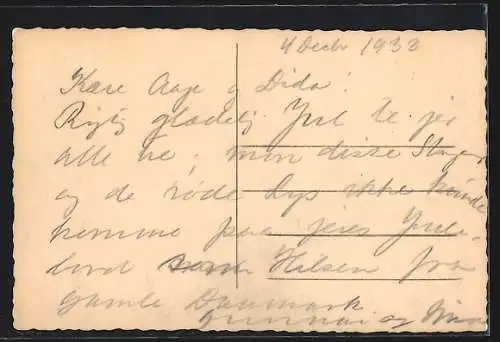 4 Decbr 1933
Kære Aage og Dida!
Rigtig glædelig Jul te jer
alle tre. mon disse Stager
og de røde Lys ikke kunde
komme paa jeres Jule-
bord som Hilsen fra
gamle Danmark
Gunnar og